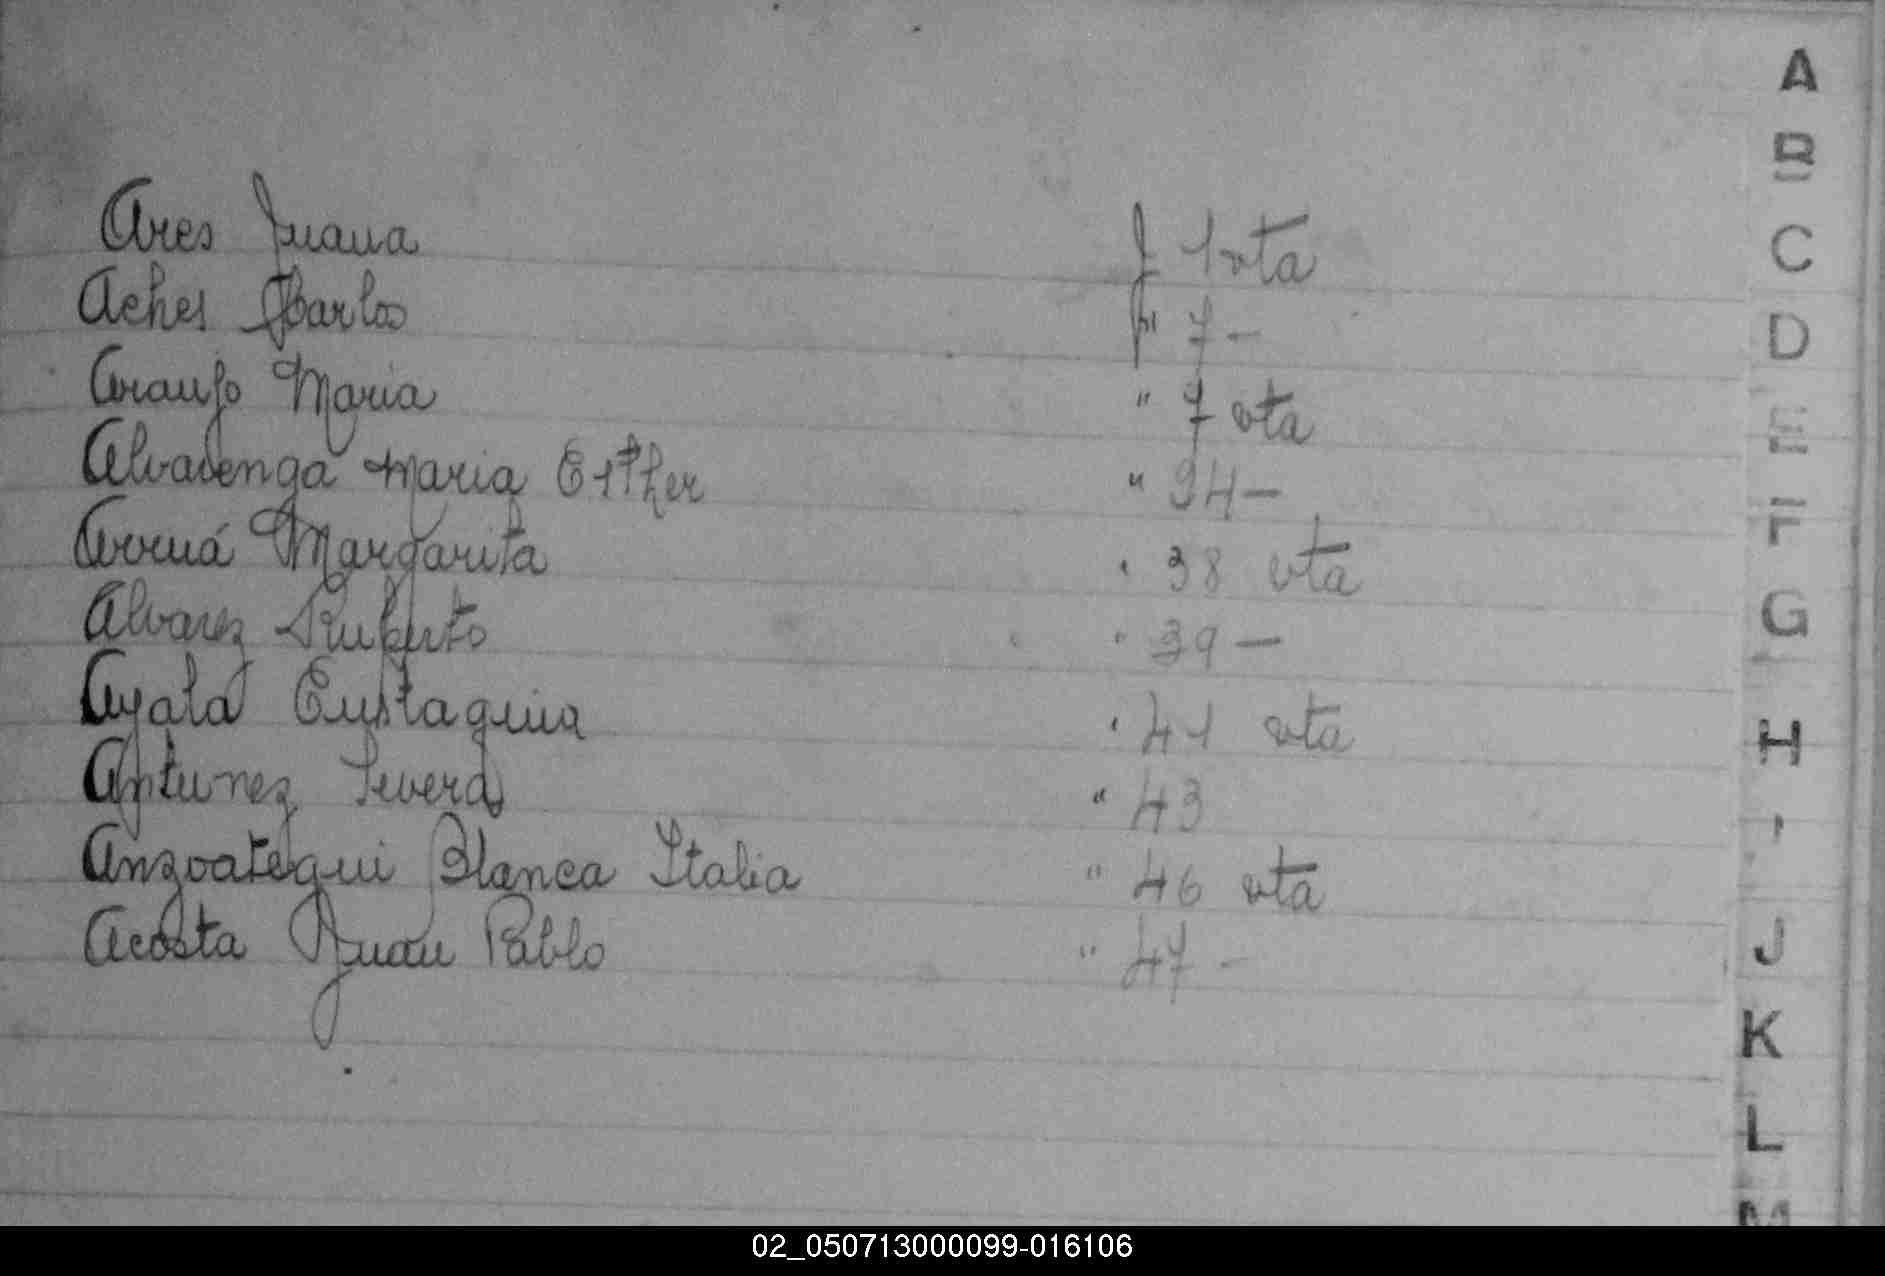 Ares Juana f 1 vta
Aches Carlos f" 7 -
Araujo Maria " 7 vta
Alvarenga Maria Esther " 34 -
Arruá Margarita " 38 vta
Alvarez Ruperto " 39 -
Ayala Eustaquia " 41 vta
Antunez Severa " 43
Anzoategui Blanca Italia " 46 vta
Acosta Juan Pablo " 47 -
A
B
C
D
E
F
G
H
I
J
K
L
M
02_050713000099-016106